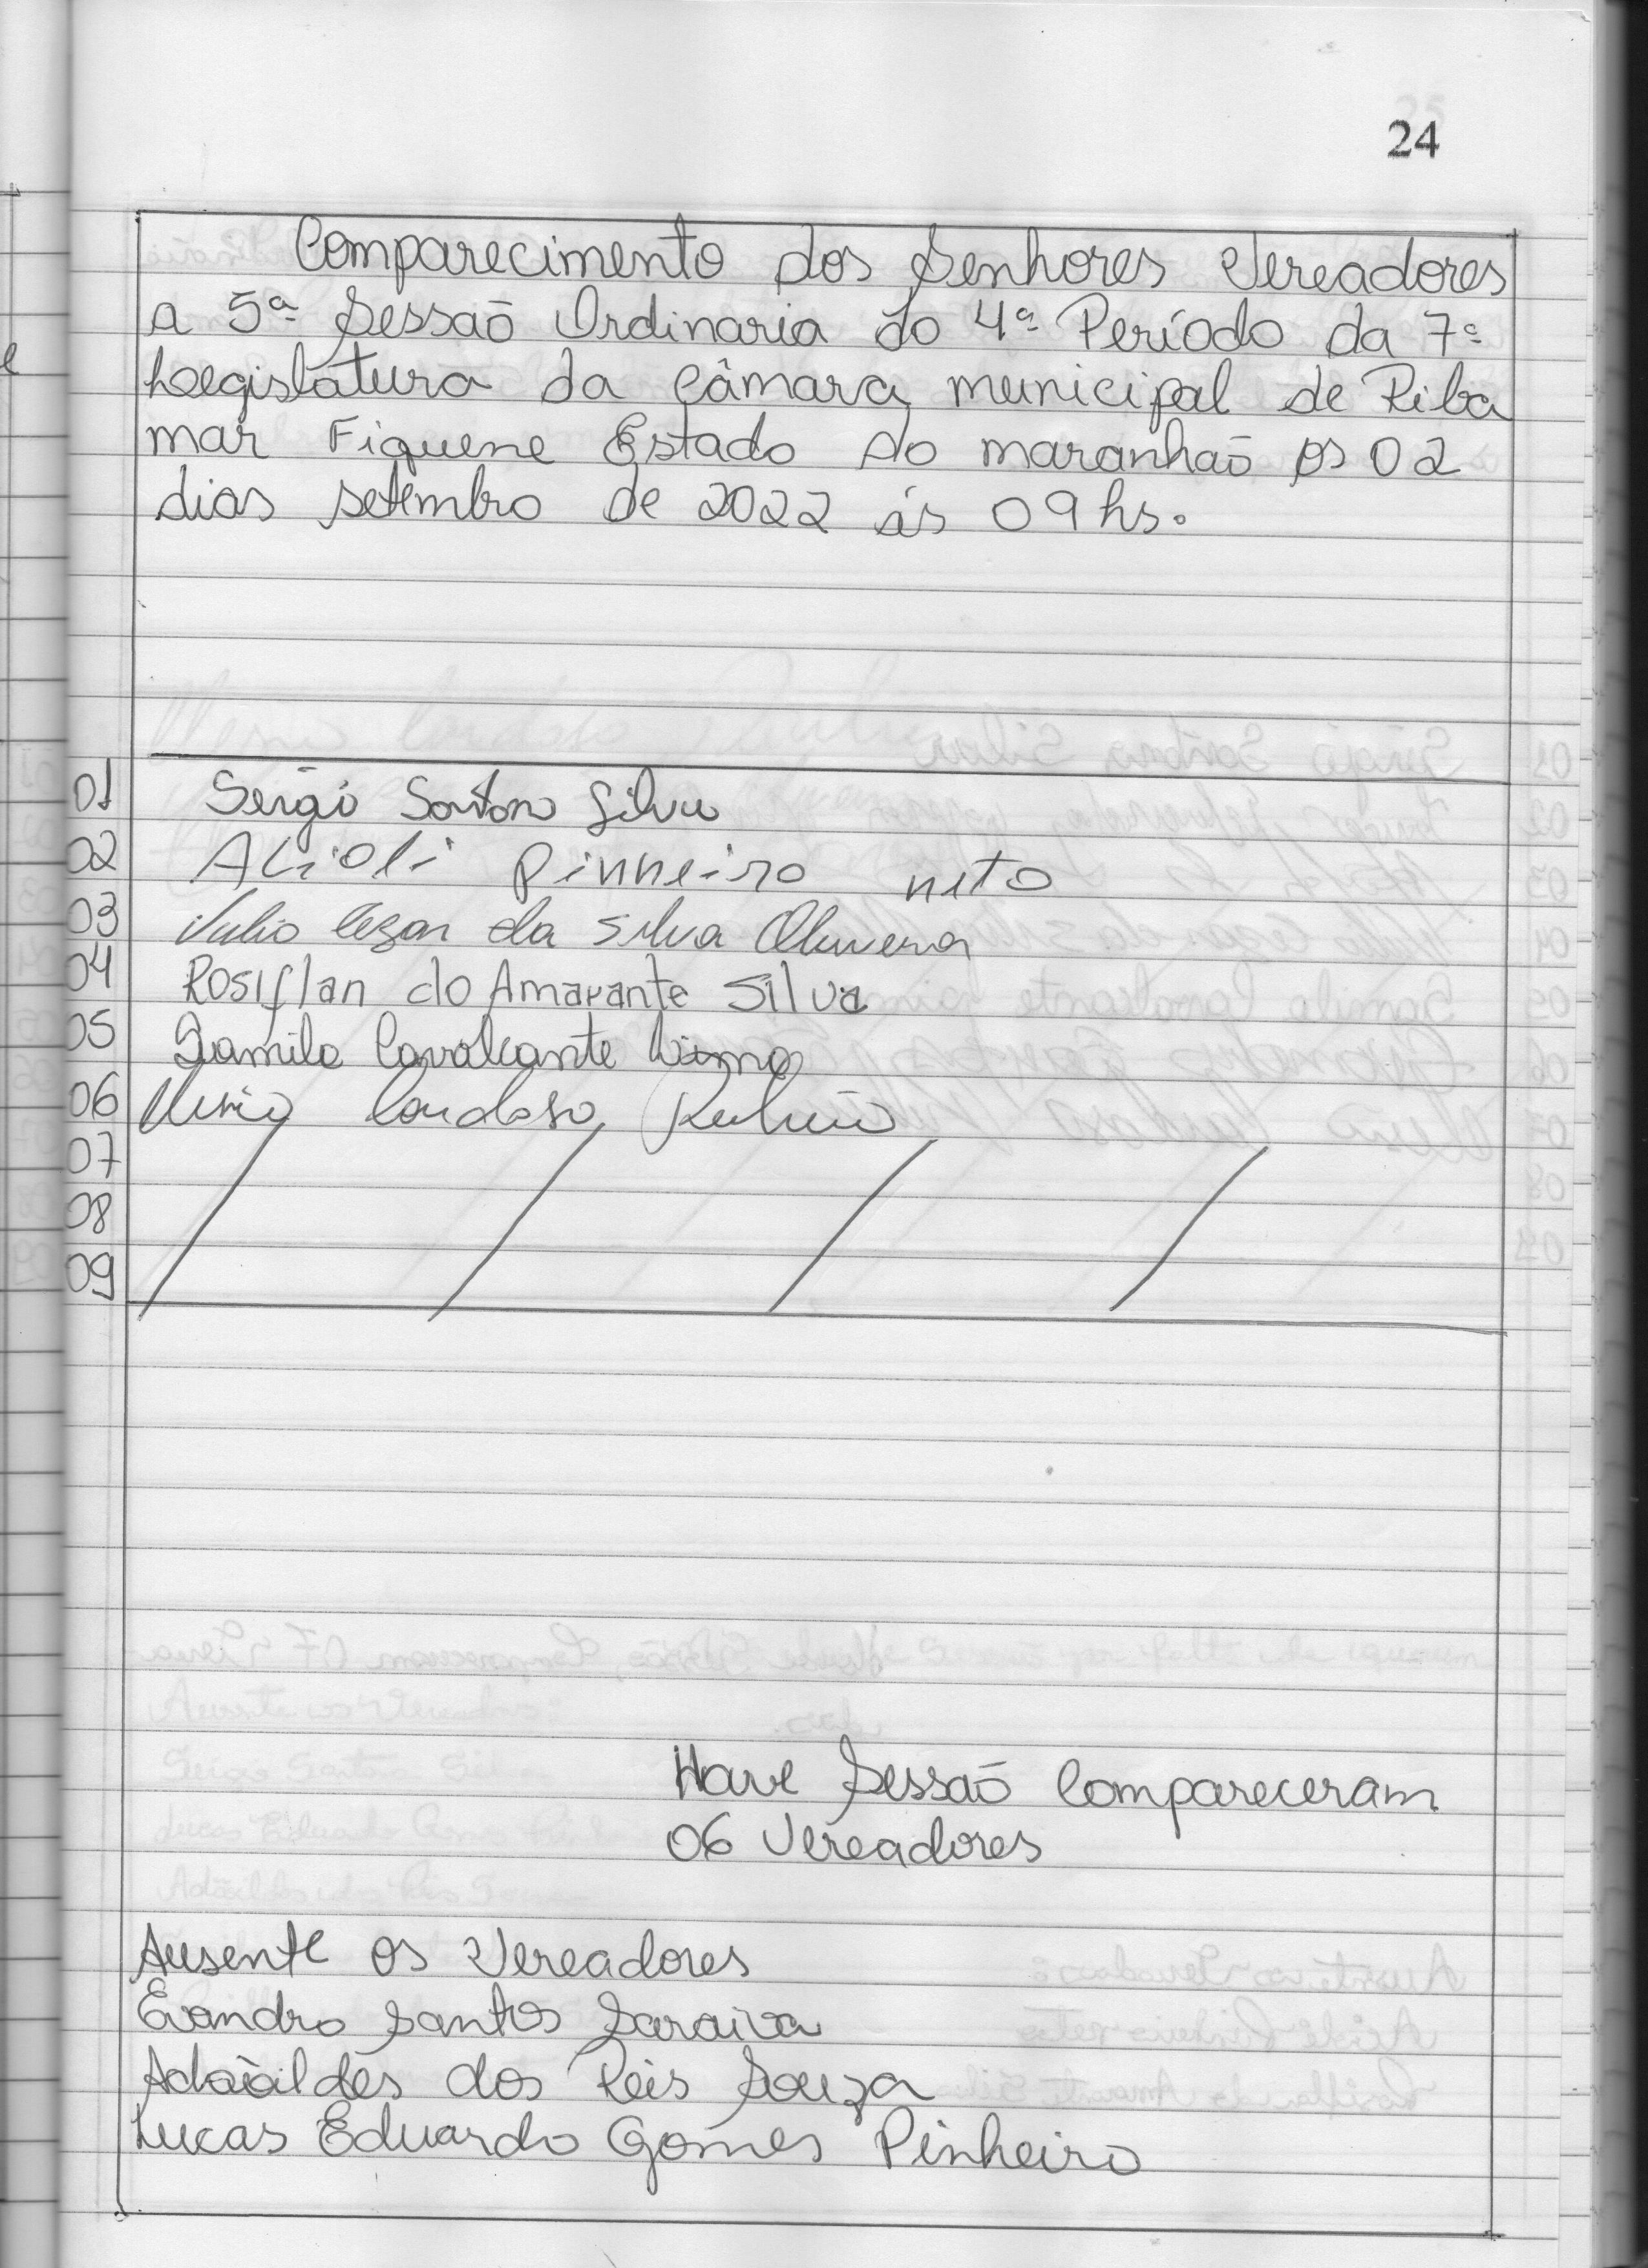 24
Comparecimento dos Senhores Vereadores
a 5ª Sessão Ordinaria do 4º Período da 7ª
Legislatura da Câmara municipal de Riba
mar Fiquene Estado do maranhão os 02
dias setembro de 2022 ás 09 hs.
01 Sergio Santos Silva
02 Acioli Pinheiro neto
03 Julio Cezar da Silva Oliveira
04 Rosiflan do Amarante Silva
05 Samila Cavalcante Lima
06 Cardoso
07
08
09
Have Sessão Compareceram
06 Vereadores
Ausente os Vereadores
Evandro Santos Saraiva
Adaildes dos Reis Souza
Lucas Eduardo Gomes Pinheiro